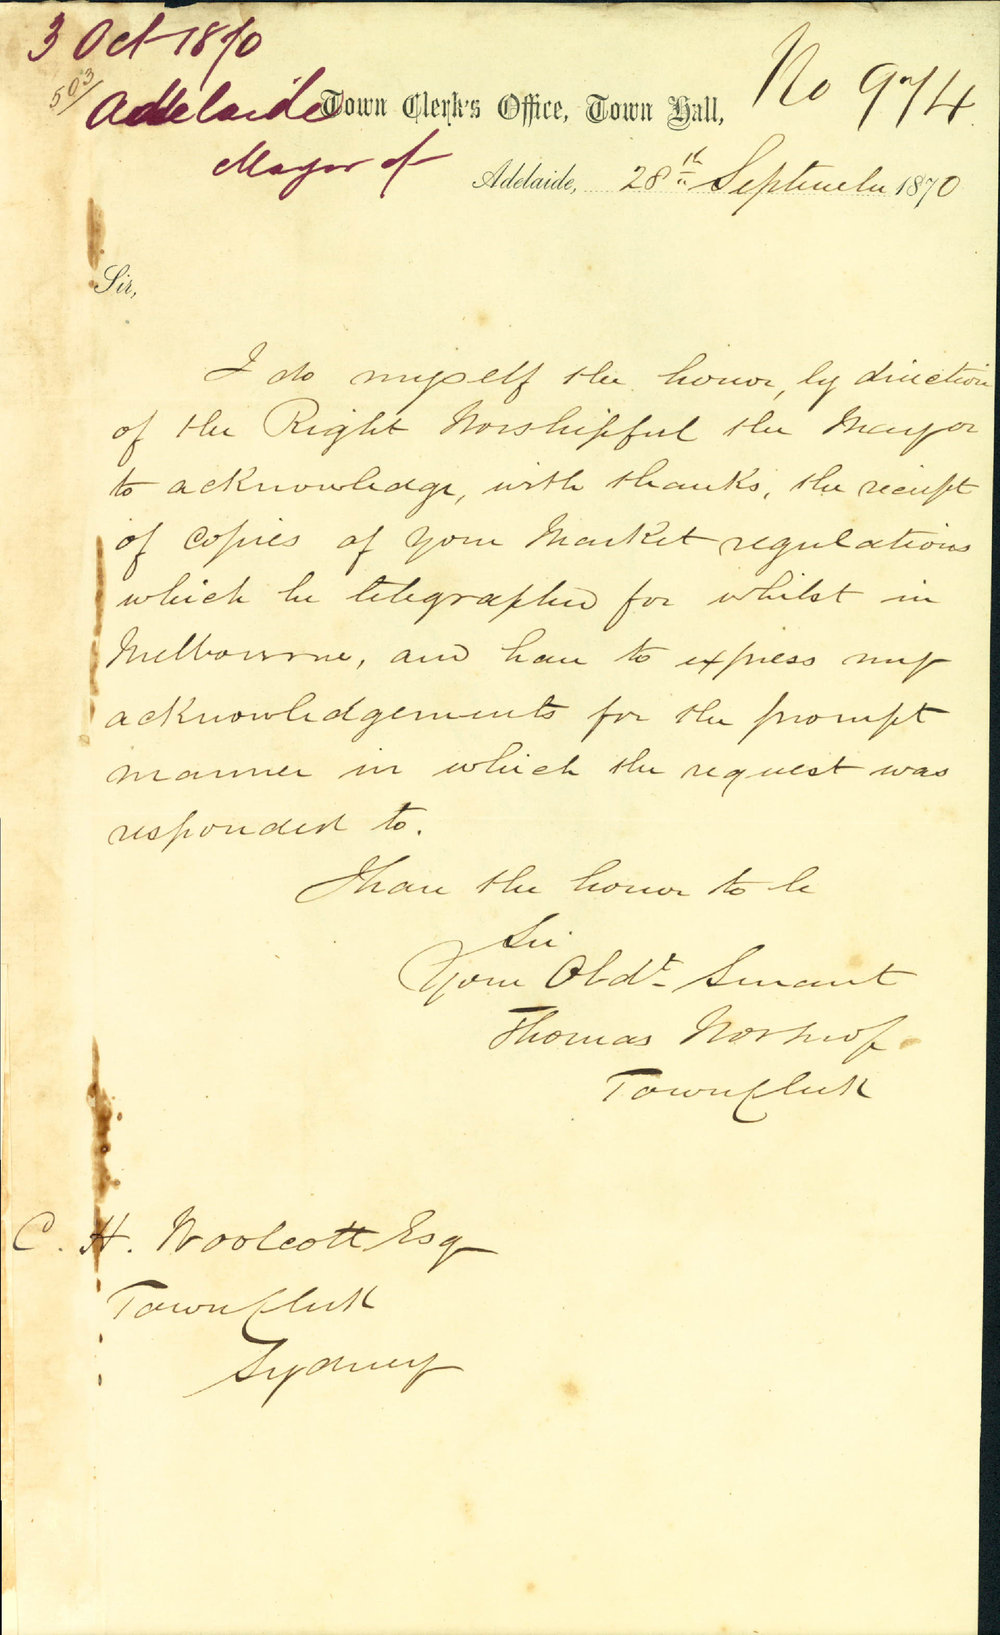 3 Oct 1870
503/
Adelaide
Mayor of
Town Clerk's Office, Town Hall,
No 974
Adelaide, 28th September 1870
Sir,
I do myself the honor, by direction
of the Right Worshipful the Mayor
to acknowledge, with thanks, the receipt
of copies of your Market regulations
which he telegraphed for whilst in
Melbourne, and have to express my
acknowledgements for the prompt
manner in which the request was
responded to.
I have the honor to be
Sir
Your Obdt. Servant
Thomas Worsnop
Town Clerk
C. H. Woolcott Esq
Town Clerk
Sydney